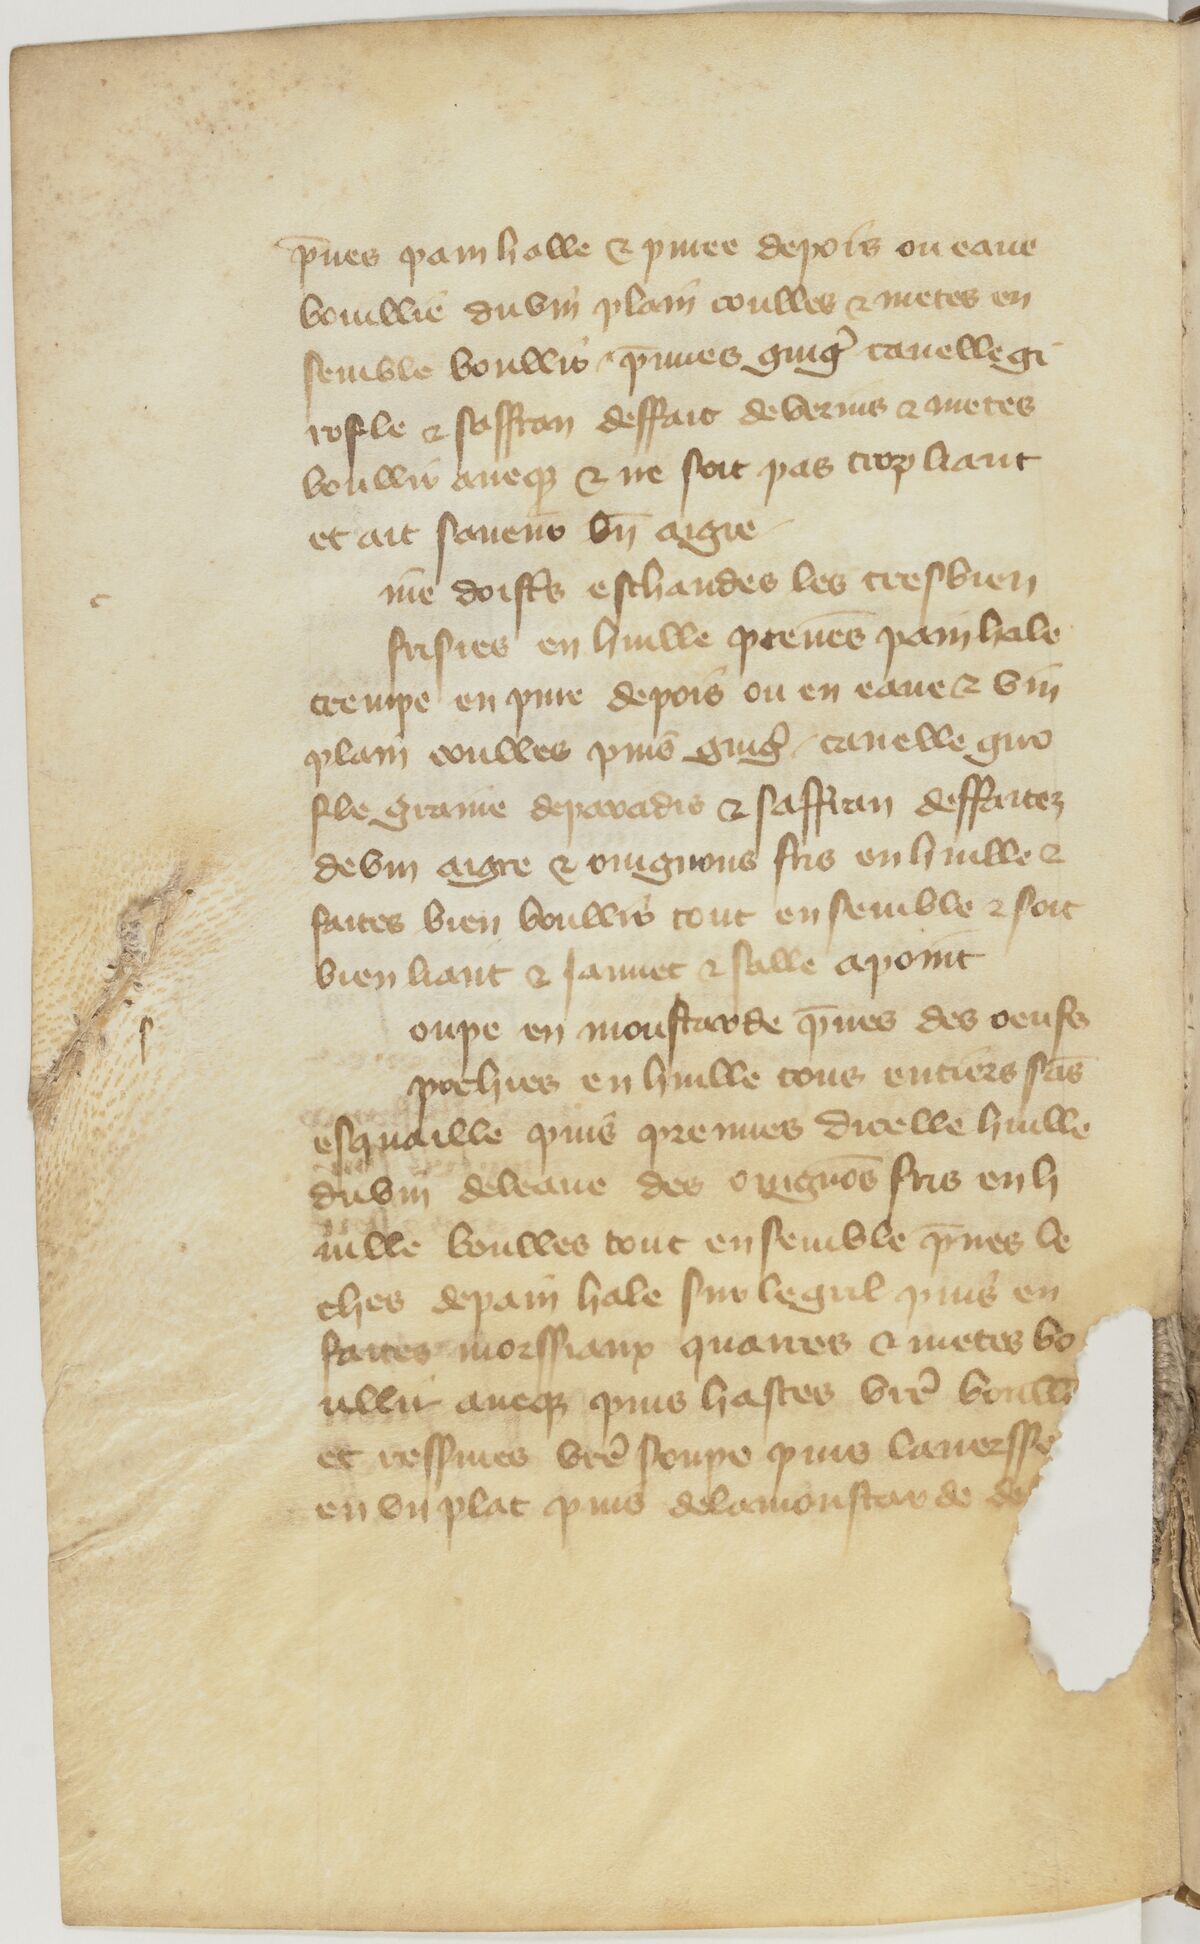 p̄nes pain halle & puree depois ou eaue
bouillie du vin plain coulles & metes en
semble boullir p̄nnes ging̉ canelle gi
rofle & saffran deffait de verius & metes
boullir aueqꝫ & ne soit pas trop liant
et ait saueur vīn aigre
c
iue doistrs eschaudes les tres bien
frisies en huille prenēs pain hale
trempe en puree depois ou en eaue & vin
plain coulles puis ging̉ canelle giro
fle graine de paradis & saffran deffaites
de vin aigre & oingnons fris en huille &
faites bien boullir tout en semble & soit
bien liant & jaunet & salle a point
s
oupe en moustarde p̄nes des oeufs
pochies en huille tous entiers sās
esquaille puis prennes dicelle huille
du vin de leaue des oingnōs fris en h
uille boulles tout en semble p̄nes le
ches depain hale sur le gril puis en
faites morssiaux quarres & metes bo
ullir aueqꝫ puis hastes vrē boull
et ressuies vrē soupe puis la versse
en vn plat puis de la moustarde de